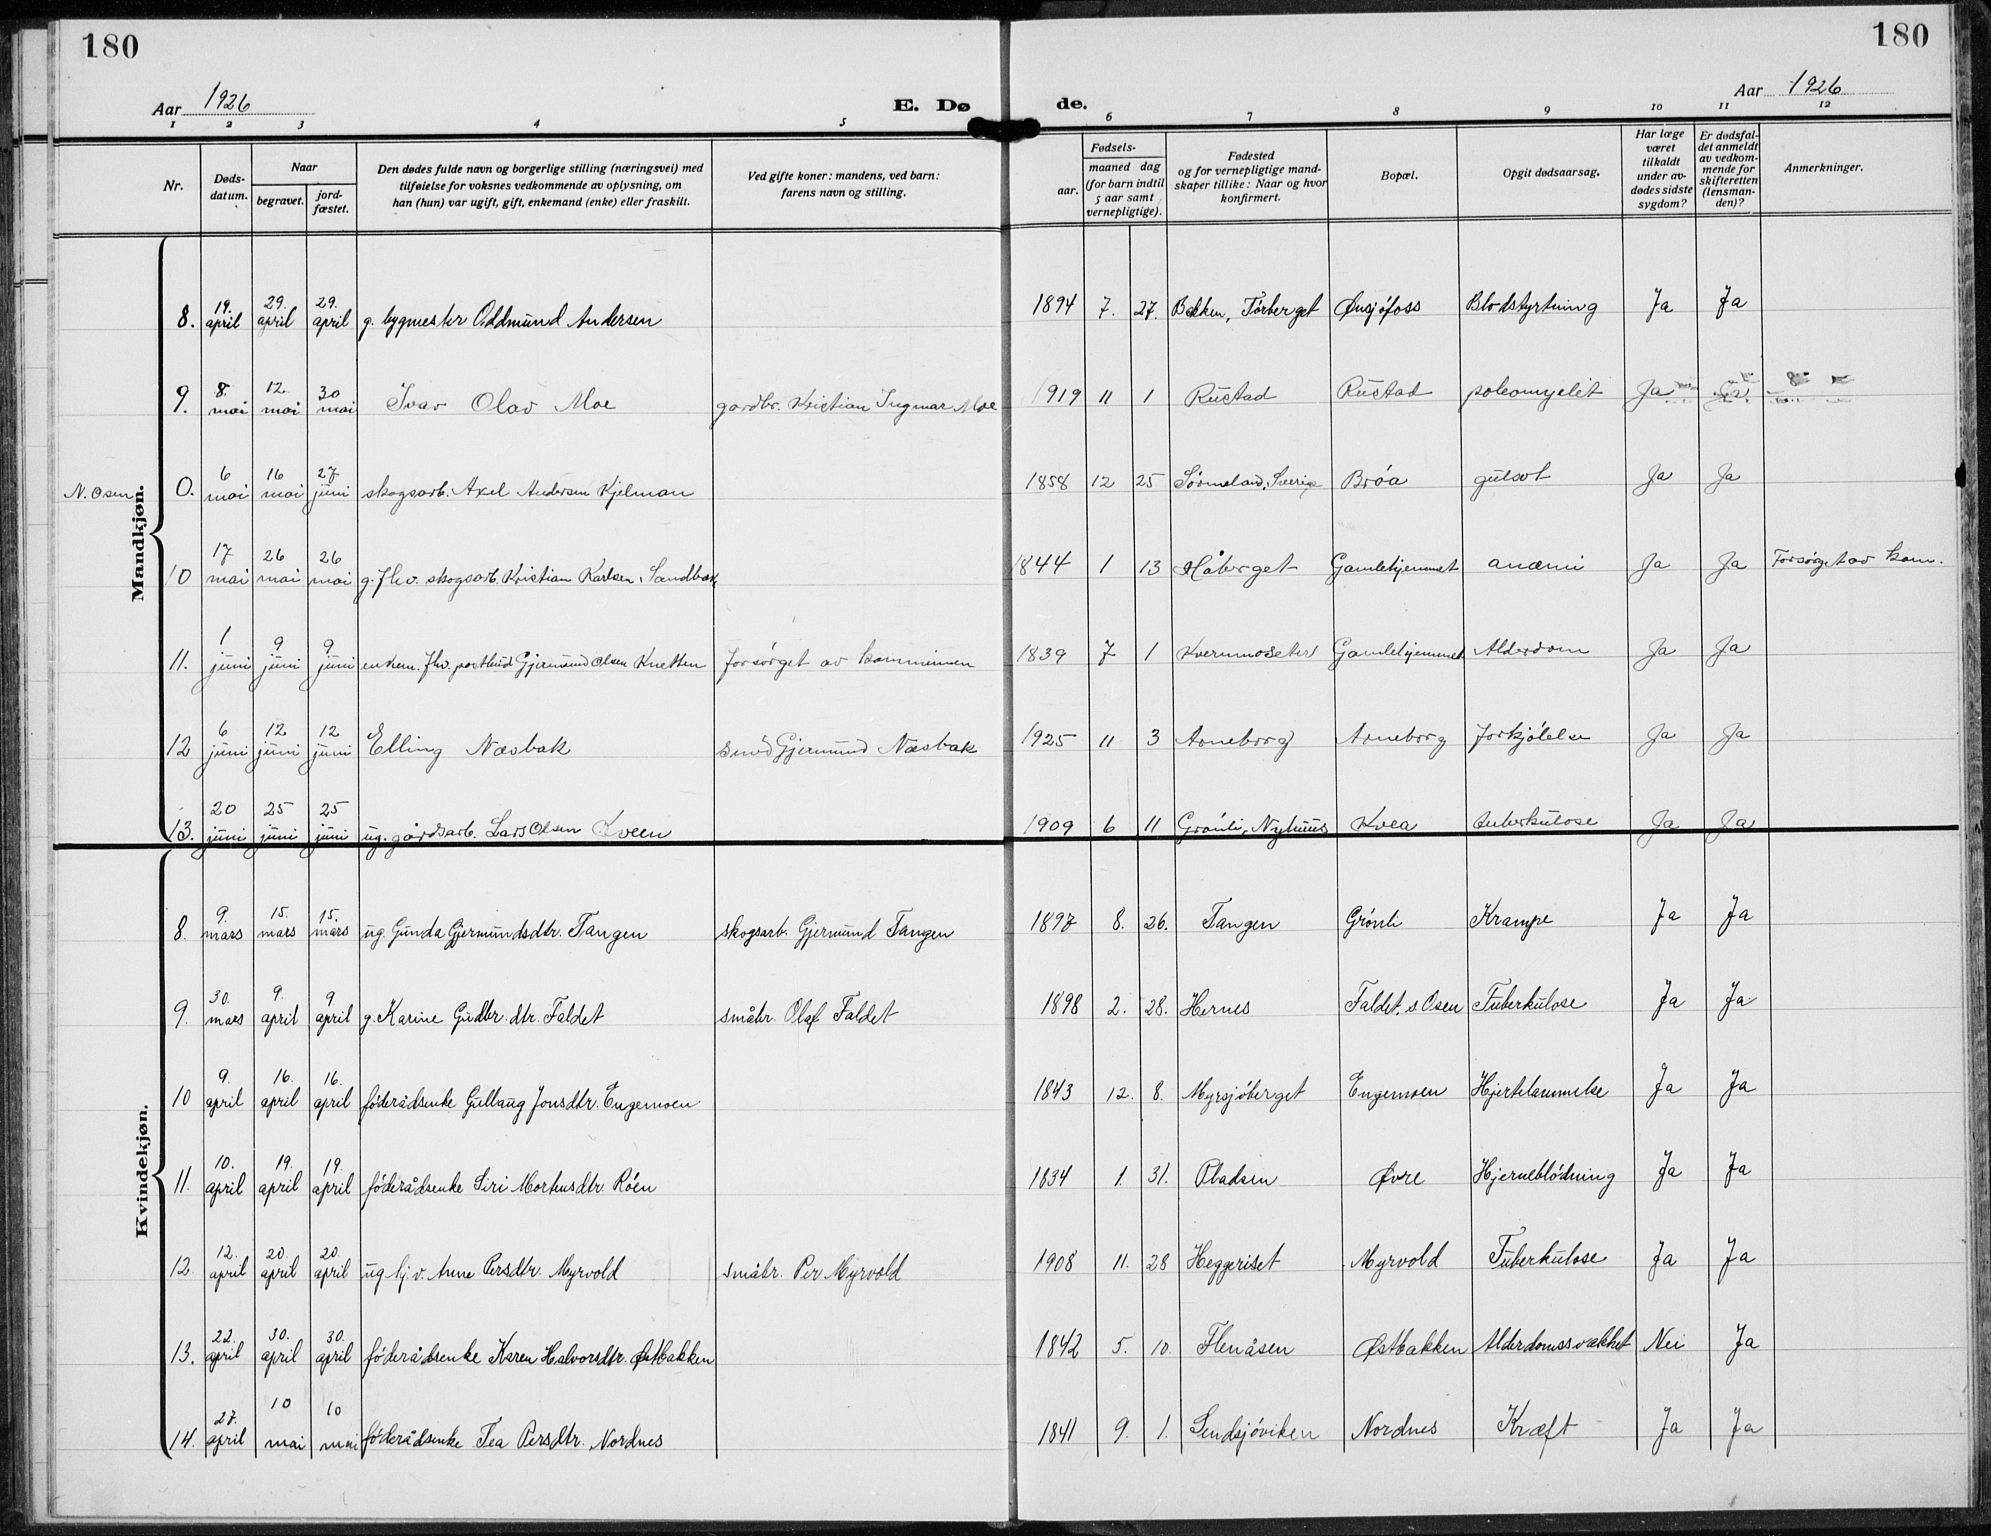 180
180
Aar 1926
E. Dø
de.
Aar 1926
1 2 3 4 5 6 7 8 9 10 11 12
Nr.
Døds-datum.
Naar
begravet.
jord-fæstet.
Den dødes fulde navn og borgerlige stilling (næringsvei) med
tilføielse for voksnes vedkommende av oplysning, om
han (hun) var ugift, gift, enkemand (enke) eller fraskilt.
Ved gifte koner: mandens, ved barn:
farens navn og stilling.
Fødsels-
aar.
maaned dag
(for barn indtil
5 aar samt
vernepligtige).
Fødested
og for vernepligtige mand-
skaper tillike: Naar og hvor
konfirmert.
Bopæl.
Opgit dødsaarsag.
Har læge
været
tilkaldt
under av-
dødes sidste
sygdom?
Er dødsfal-
det anmeldt
av vedkom-
mende for
skifteretten
(lensman-
den)?
Anmerkninger.
Mandkjøn.
8. 19. april 29. april 29. april g. bygmester Oddmund Andersen 1894 7. 27. Bakken, Tørberget Ønsjøfoss Blodstyrtning Ja Ja
9. 8. mai 12 mai 30 mai Ivar Olav Moe gardbr. Kristian Ingmar Moe 1919 11 1 Rustad Rustad poleomyelit Ja Ja
N. Osen 0. 6 mai 16 mai 27 juni skogsarb. Axel Andersen Kjelman 1858 12 25 Sørmeland, Sverige Brøa gulsot Ja Ja
10 17 mai 26 mai 26 mai g. fhv. skogsarb. Kristian Karlsen Sandbæk 1844 1 13 Håberget Gamlehjemmet anæmi Ja Ja Forsørget av kom.
11. 1 juni 9 juni 9 juni enkem. fhv. postbud Gjermund Olsen Knetten forsørget av kommunen 1839 7 1 Kvernmoseter Gamlehjemmet Alderdom Ja Ja
12 6 juni 12 juni 12 juni Elling Næsbak smed Gjermund Næsbak 1925 11 3 Arneborg Arneborg forkjølelse Ja Ja
13. 20 juni 25 juni 25 juni ug. gårdsarb. Lars Olsen Kveen 1909 6 11 Grønli, Nyhuus Kvea tuberkulose Ja Ja
Kvindekjøn.
8. 9. mars 15. mars 15. mars ug. Gunda Gjermundsdtr. Tangen skogsarb. Gjermund Tangen 1897 8. 26. Tangen Grønli Krampe Ja Ja
9. 30. mars 9. april 9. april g. Karine Gudbr. dtr. Faldet småbr. Olaf Faldet 1898 2. 28. Hernes Faldet, s. Osen Tuberkulose Ja Ja
10 9. april 16. april 16. april føderådsenke Gullaug Jonsdtr. Engemoen 1843 12. 8. Myrsjøberget Engemoen Hjertelammelse Ja Ja
11. 10. april 19. april 19. april føderådsenke Siri Mortensdtr. Røen 1834 1. 31. Pladsen Øvre Hjerneblødning Ja Ja
12. 12. april 20. april 20. april ug. hj. v. Anne Persdtr. Myrvold småbr. Per Myrvold 1908 11. 28 Heggeriset Myrvold Tuberkulose Ja Ja
13. 22. april 30. april 30. april føderådsenke Karen Halvorsdtr. Østbakken 1842 5. 10. Flenåsen Østbakken Alderdomssvækket Nei Ja
14. 27. april 10 mai 10 mai føderådsenke Tea Persdtr. Nordnes 1841 9. 1. Sendsjøviken Nordnes Kræft Ja Ja